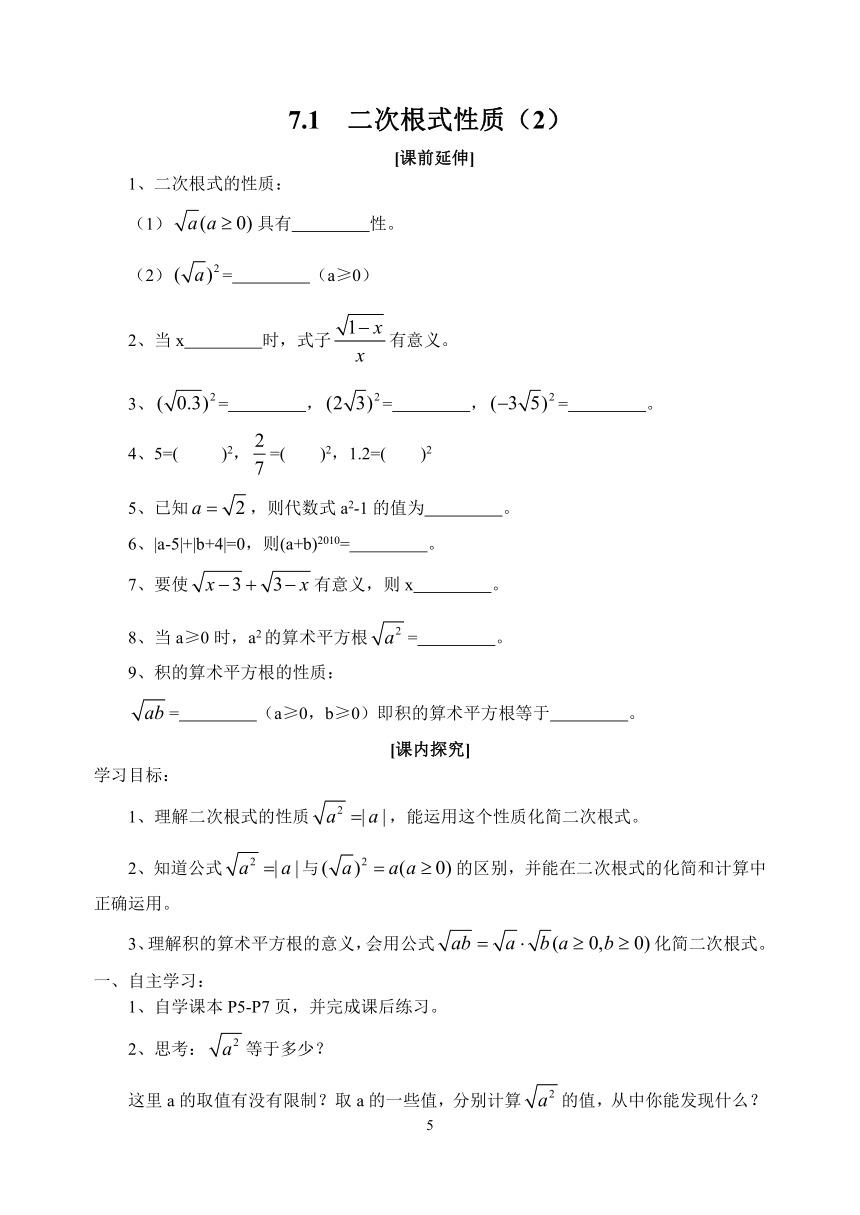 7.1 二次根式性质（2）
[课前延伸]
1、二次根式的性质：
（1）√a(a≥0)具有________性。
（2）(√a)²=________（a≥0）
2、当x________时，式子√(1−x)/x有意义。
3、(√0.3)²=________，(2√3)²=________，(−3√5)²=________。
4、5=(   )²，2/7=(   )²，1.2=(   )²
5、已知a=√2，则代数式a²-1的值为________。
6、|a-5|+|b+4|=0，则(a+b)²⁰¹⁰=________。
7、要使√(x−3)+√(3−x)有意义，则x________。
8、当a≥0时，a²的算术平方根√(a²)=________。
9、积的算术平方根的性质：
√(ab)=________（a≥0，b≥0）即积的算术平方根等于________。
[课内探究]
学习目标：
1、理解二次根式的性质√(a²)=|a|，能运用这个性质化简二次根式。
2、知道公式√(a²)=|a|与(√a)²=a(a≥0)的区别，并能在二次根式的化简和计算中
正确运用。
3、理解积的算术平方根的意义，会用公式√(ab)=√a·√b(a≥0,b≥0)化简二次根式。
一、自主学习：
1、自学课本P5-P7页，并完成课后练习。
2、思考：√(a²)等于多少？
这里a的取值有没有限制？取a的一些值，分别计算√(a²)的值，从中你能发现什么？
5